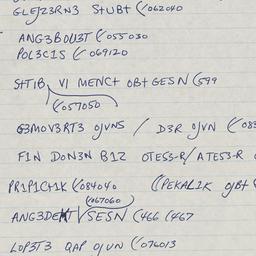 GLEJZ3RN3 StUBt (✓062040
ANG3BOU3T (✓055030
POL3C1S (✓069120
SHTIB VI MENCt OBt GESN (599
(✓057050
G3MOV3RT3 OJVNS / D3R OJVN (083
FIN DON3N B1Z OTES3-R/ATES3-R
PR1P1Ct1K (✓084040 ((PEKAL1K OJBt
(✓067060
SESN (466 (467
LOP3T3 QAP OJVN (✓076013